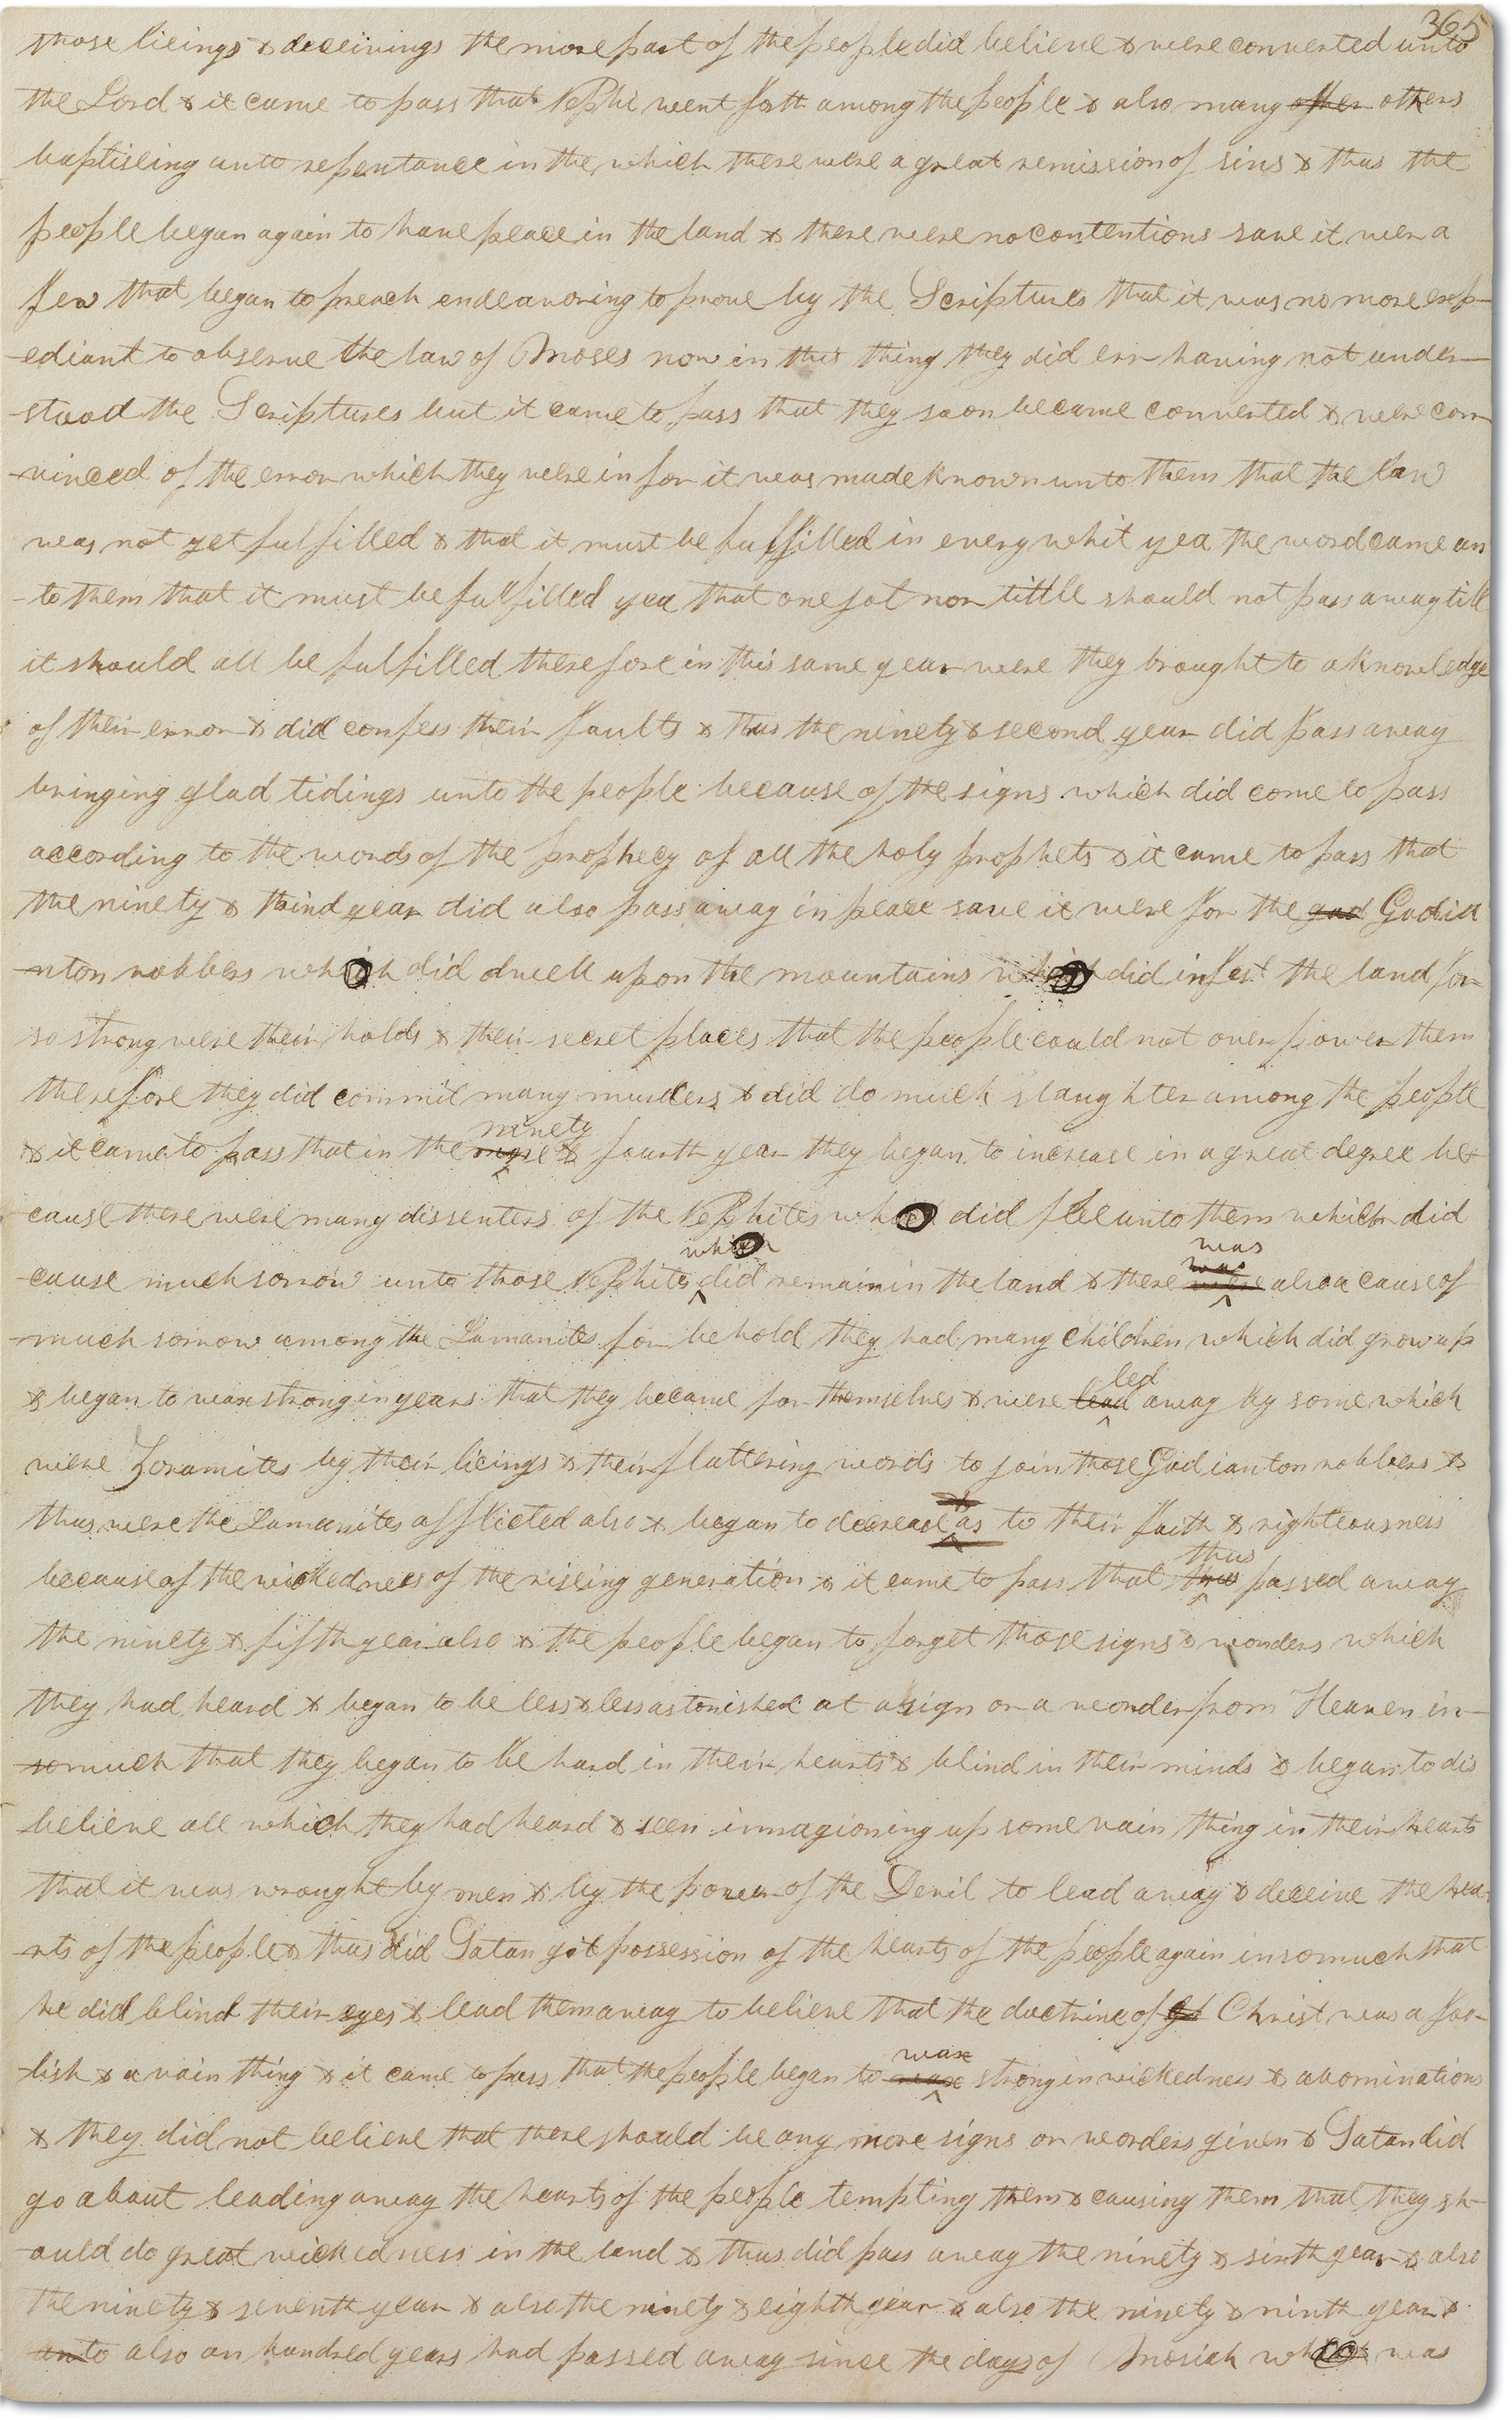 365
those lieings & deceivings the more part of the people did believe & were converted unto
the Lord & it came to pass that Nephi went forth among the people & also many other others
baptiseing unto repentance in the which there were a great remission of sins & thus the
people began again to have peace in the land & there were no contentions save it were a
few that began to preach endeavoring to prove by the Scriptures that it was no more exp-
-ediant to observe the law of Moses now in this thing they did err having not under-
-stood the Scriptures but it came to pass that they soon became converted & were con-
-vinced of the error which they were in for it was made known unto them that the law
was not yet fulfilled & that it must be fulfilled in every whit yea the word came un
-to them that it must be fulfilled yea that one jot nor tittle should not pass away till
it should all be fulfilled therefore in this same year were they brought to a knowledge
of their error & did confess their faults & thus the ninety & second year did pass away
bringing glad tidings unto the people because of the signs which did come to pass
according to the words of the prophecy of all the holy prophets & it came to pass that
the ninety & third year did also pass away in peace save it were for the gad Gadia
-nton robbers which did dwell upon the mountains which did infest the land for
so strong were their holds & their secret places that the people could not over power them
therefore they did commit many murders & did do much slaughter among the people
ninety
& it came to pass that in the & fourth year they began to increase in a great degree be-
cause there were many dissenters of the Nephites who did flee unto them which did
which was
-cause much sorrow unto those Nephites did remain in the land & there was were also a cause of
-much sorrow among the Lamanites for behold they had many children which did grow up
led
& began to wax strong in years that they became for themselves & were lead away by some which
were Zoramites by their lieings & their flattering words to join those Gadianton robbers &
thus were the Lamanites afflicted also & began to decrease as to their faith & righteousness
thus
because of the wickedness of the riseing generation & it came to pass that passed away
the ninety & fifth year also & the people began to forget those signs & wonders which
they had heard & began to be less & less astonished at a sign or a wonder from Heaven in-
-somuch that they began to be hard in their hearts & blind in their minds & began to dis
believe all which they had heard & seen immagioning up some vain thing in their hearts
that it was wrought by men & by the power of the Devil to lead away & deceive the hea-
-rts of the people & thus did Satan got possession of the hearts of the people again insomuch that
he did blind their eyes & lead them away to believe that the doctrine of Christ was a foo-
wax
-lish & a vain thing & it came to pass that the people began to strong in wickedness & abominations
& they did not believe that there should be any more signs or wonders given & Satan did
go about leading away the hearts of the people tempting them & causing them that they sh-
-ould do great wickedness in the land & thus did pass away the ninety & sixth year & also
the ninety & seventh year & also the ninety & eighth year & also the ninety & ninth year &
also an hundred years had passed away since the days of Mosiah who was